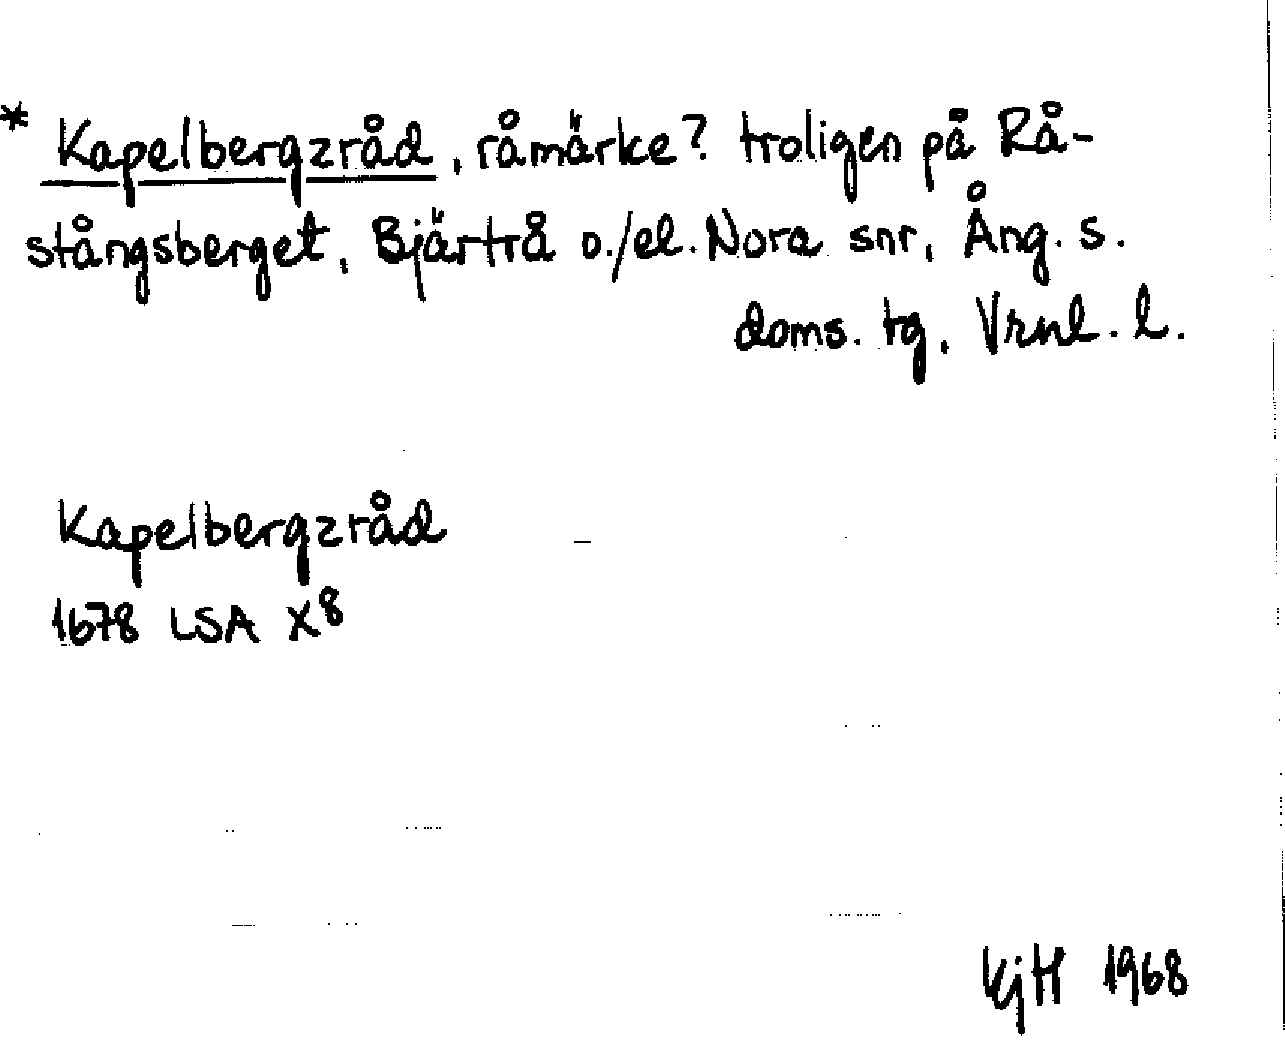 * Kapelbergzråd, råmärke? troligen på Rå-
stångsberget, Bjärtrå o./el. Nora snr, Ång. s.
doms. tg, Vrnl. l.
Kapelbergzråd
1678 LSA X8
KjH 1968